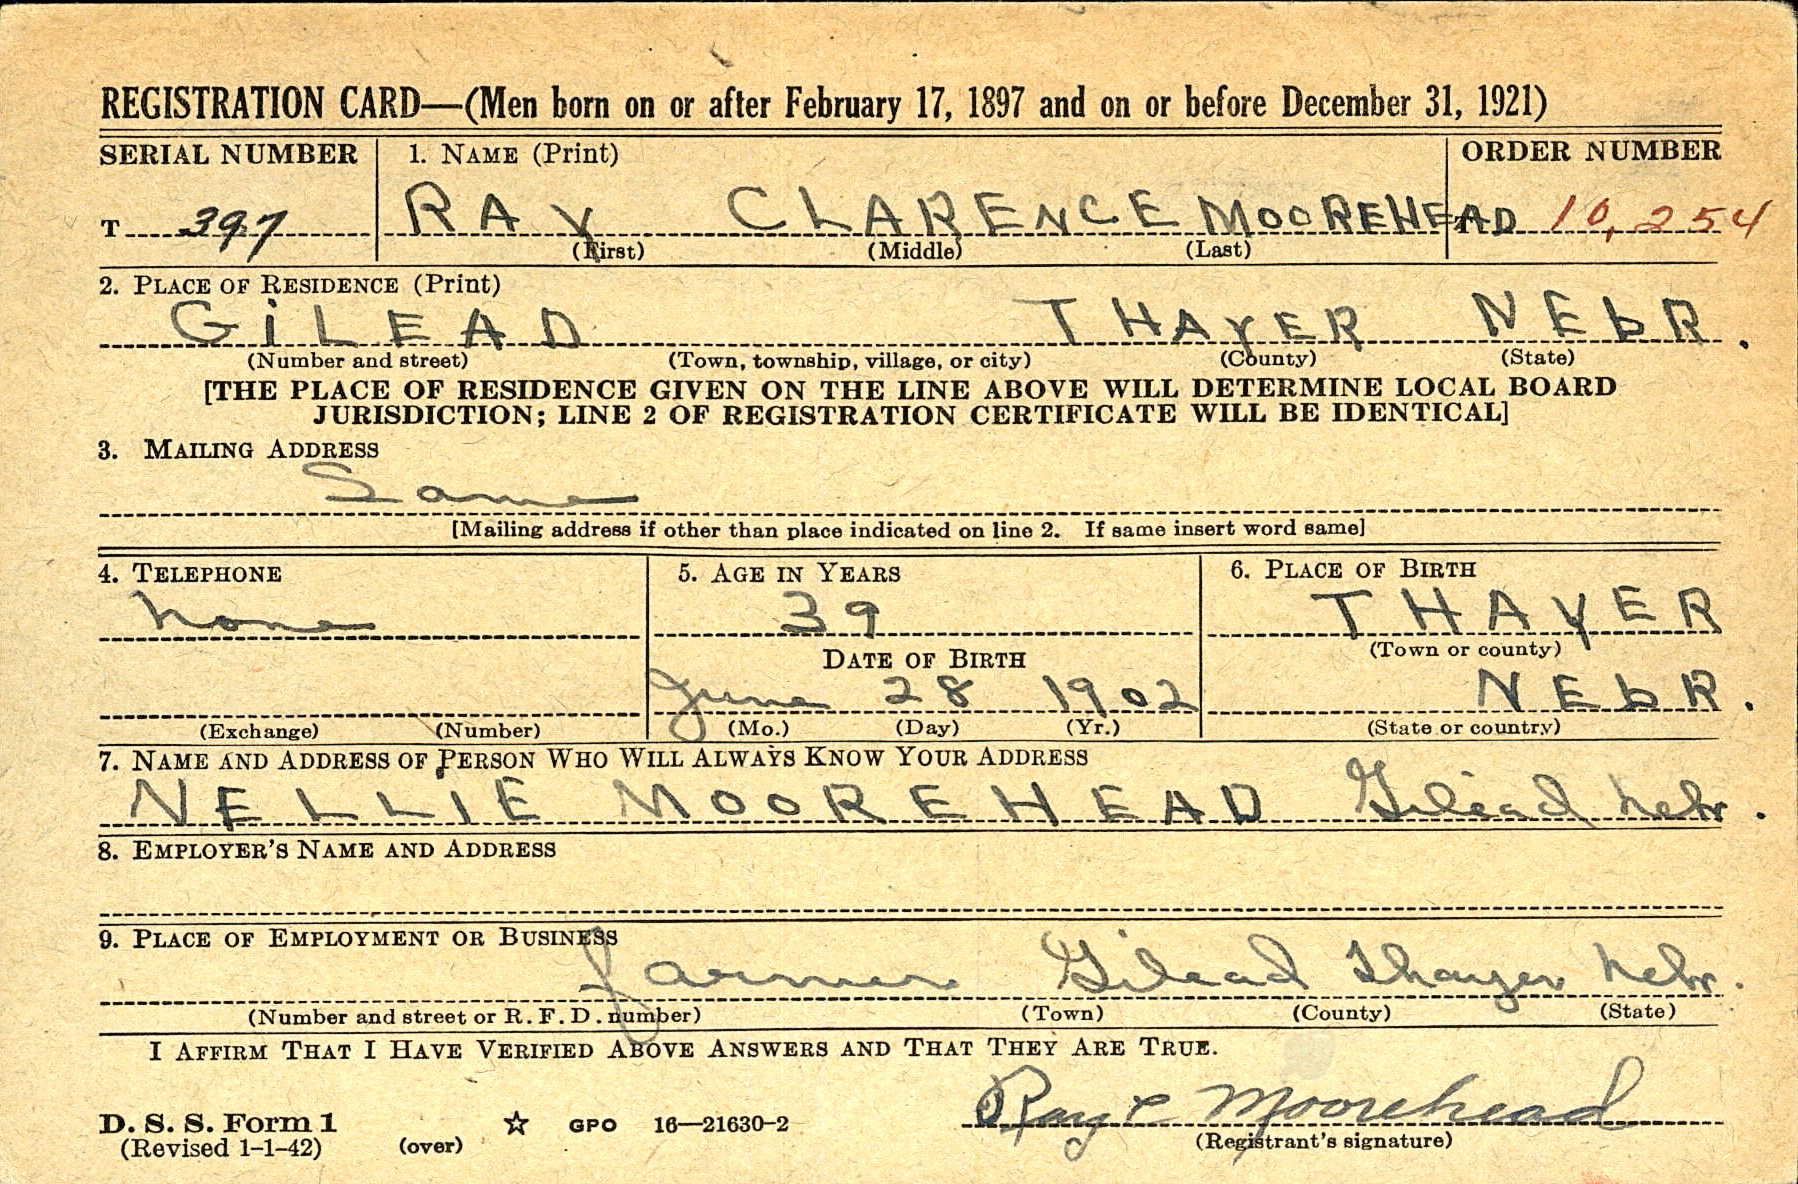 REGISTRATION CARD—(Men born on or after February 17, 1897 and on or before December 31, 1921)
SERIAL NUMBER 1. NAME (Print) ORDER NUMBER
T 397 RAY CLARENCE MOOREHEAD 10,254
(First) (Middle) (Last)
2. PLACE OF RESIDENCE (Print)
GiLEAD THAYER NEbR.
(Number and street) (Town, township, village, or city) (County) (State)
[THE PLACE OF RESIDENCE GIVEN ON THE LINE ABOVE WILL DETERMINE LOCAL BOARD
JURISDICTION; LINE 2 OF REGISTRATION CERTIFICATE WILL BE IDENTICAL]
3. MAILING ADDRESS
Same
[Mailing address if other than place indicated on line 2. If same insert word same]
4. TELEPHONE 5. AGE IN YEARS 6. PLACE OF BIRTH
None 39 THAYER
DATE OF BIRTH (Town or county)
June 28 1902 NEbR.
(Exchange) (Number) (Mo.) (Day) (Yr.) (State or country)
7. NAME AND ADDRESS OF PERSON WHO WILL ALWAYS KNOW YOUR ADDRESS
NELLIE MOOREHEAD Gilead Nebr.
8. EMPLOYER'S NAME AND ADDRESS
9. PLACE OF EMPLOYMENT OR BUSINESS
farmer Gilead Thayer Nebr.
(Number and street or R. F. D. number) (Town) (County) (State)
I AFFIRM THAT I HAVE VERIFIED ABOVE ANSWERS AND THAT THEY ARE TRUE.
Ray C Moorehead
D. S. S. Form 1 ☆ GPO 16—21630-2
(Revised 1-1-42) (over) (Registrant's signature)